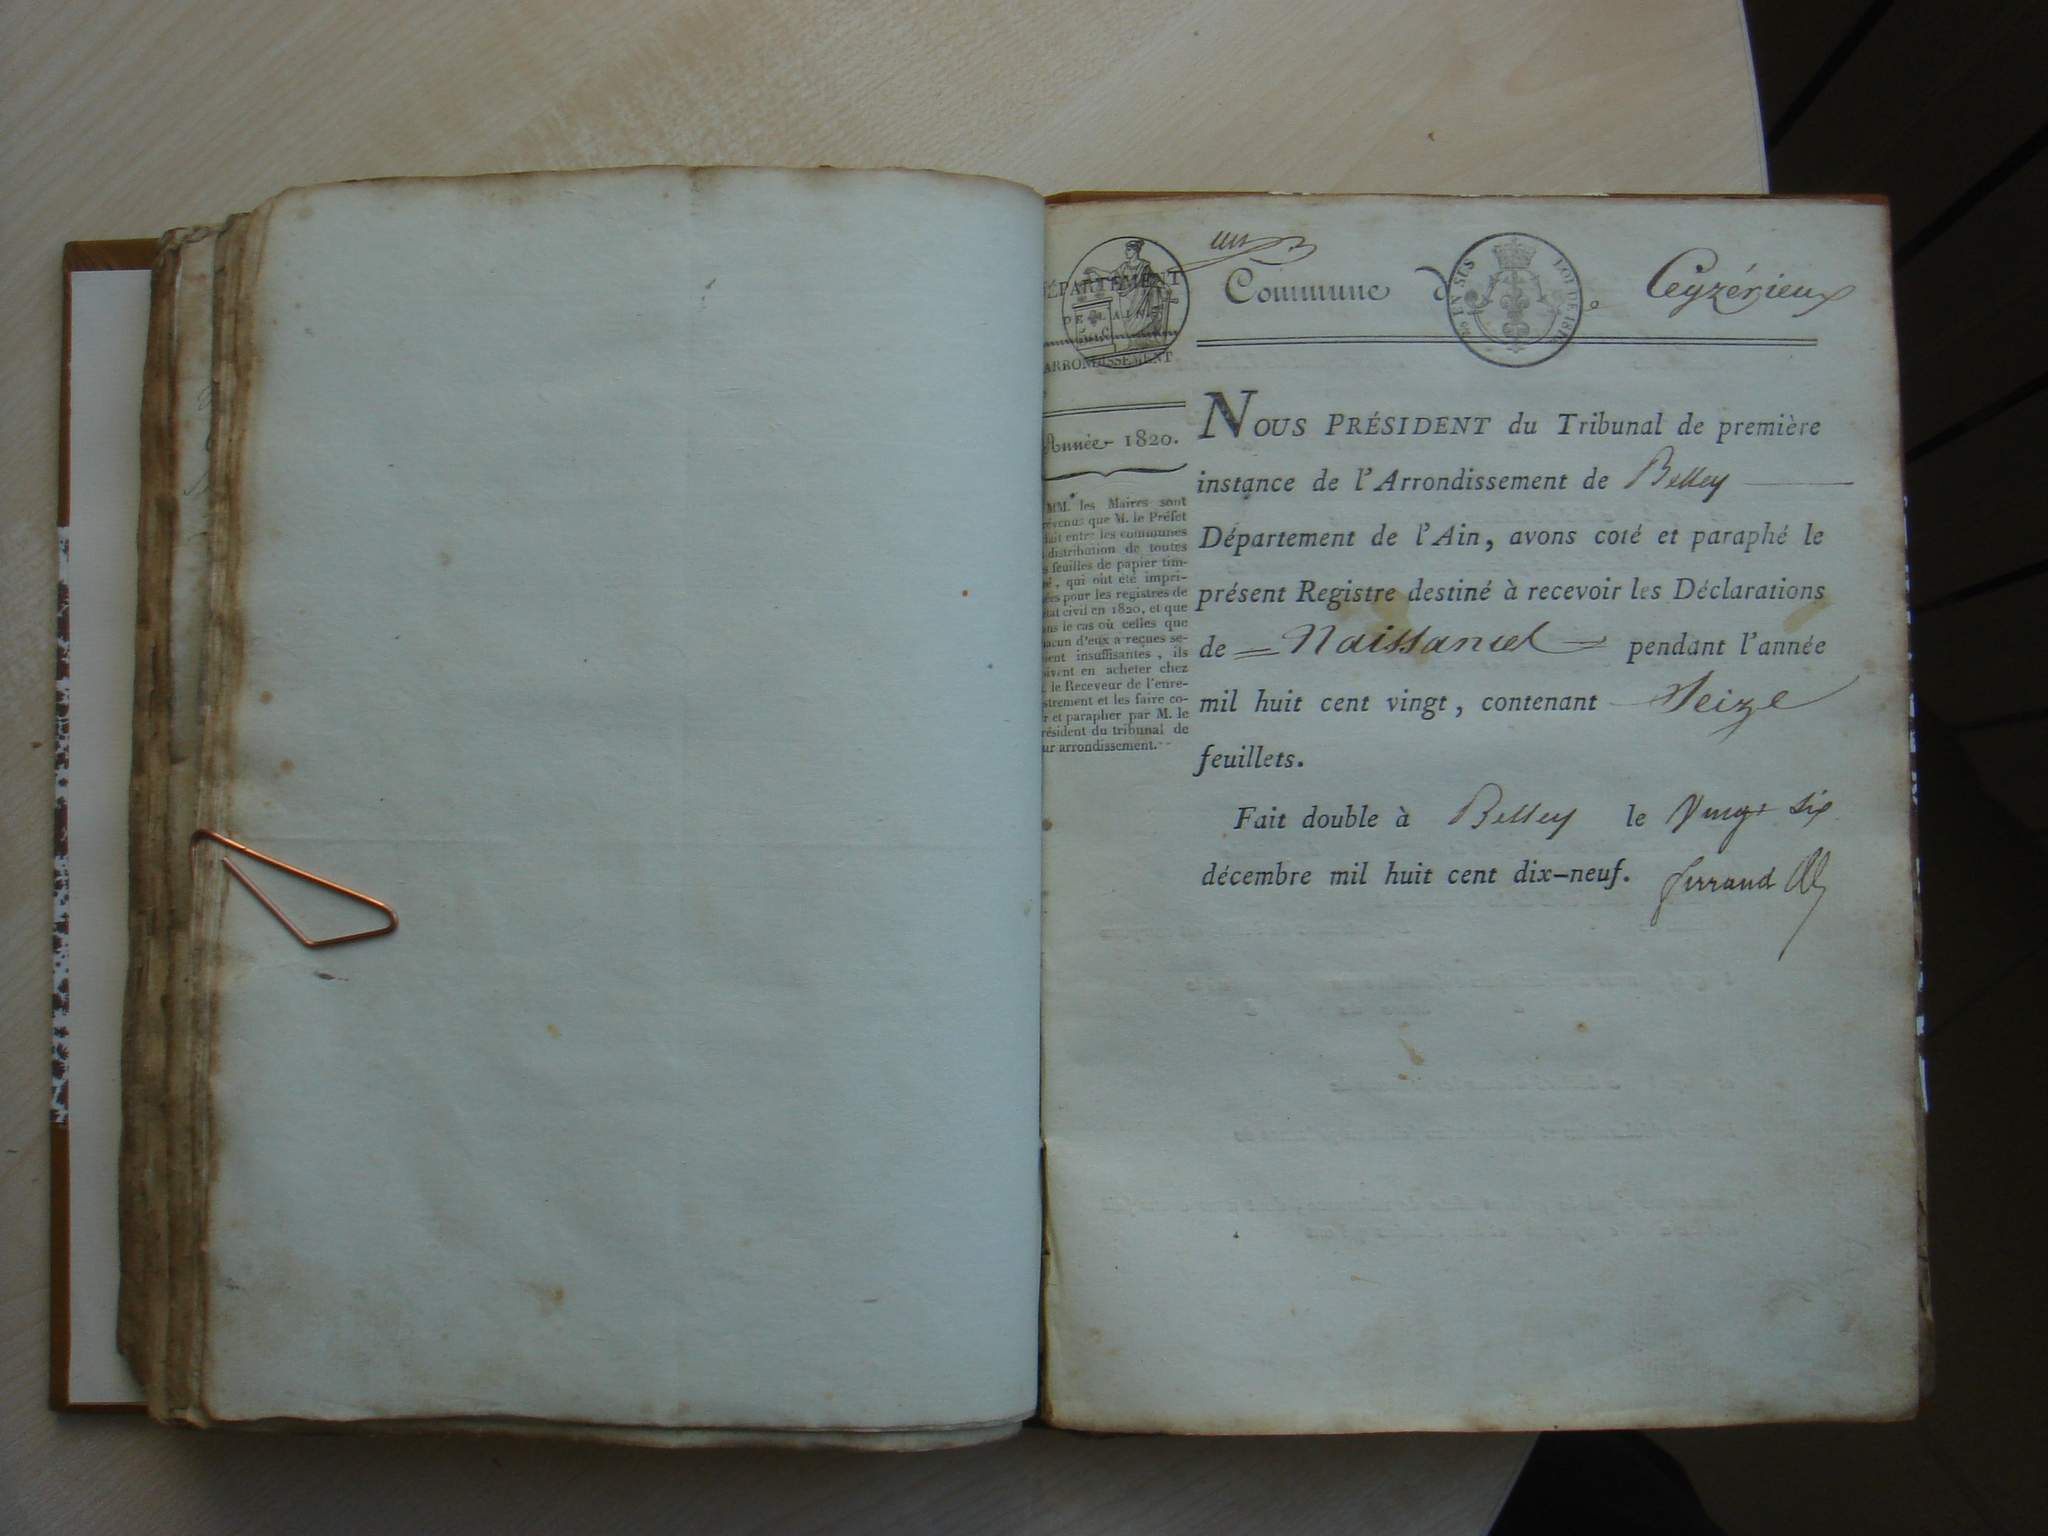 un
DÉPARTEMENT
DE L'AIN.
ARRONDISSEMENT
Année 1820.
MM. les Maires sont
révenus que M. le Préfet
fait entre les communes
distribution de toutes
s feuilles de papier tim-
é, qui ont été impri-
ées pour les registres de
état civil en 1820, et que
ans le cas où celles que
hacun d'eux a reçues se-
oient insuffisantes, ils
oivent en acheter chez
. le Receveur de l'enre-
strement et les faire co-
r et parapher par M. le
résident du tribunal de
ur arrondissement.
Commune d Ceyzérieux
EN SUS LOI DE 1816
NOUS PRÉSIDENT du Tribunal de première
instance de l'Arrondissement de Belley
Département de l'Ain, avons coté et paraphé le
présent Registre destiné à recevoir les Déclarations
de Naissances pendant l'année
mil huit cent vingt, contenant Seize
feuillets.
Fait double à Belley le Vingt Six
décembre mil huit cent dix-neuf. Ferrand